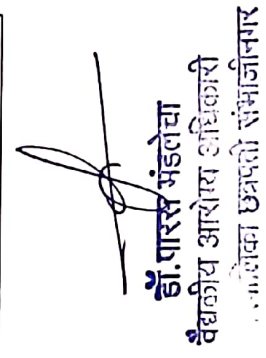 डॉ.पारस मंडलेचा
वैद्यकीय आरोग्य अधिकारी
छत्रपती संभाजीनगर